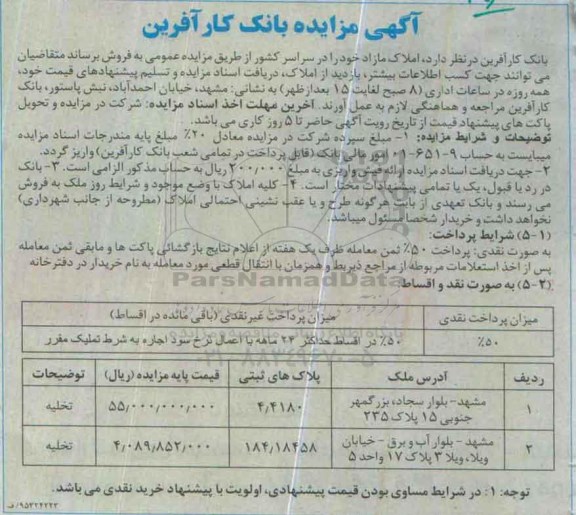 آگهی مزایده بانک کارآفرین
بانک کارآفرین در نظر دارد، املاک مازاد خود را در سراسر کشور از طریق مزایده عمومی به فروش برساند متقاضیان
می توانند جهت کسب اطلاعات بیشتر، بازدید از املاک، دریافت اسناد مزایده و تسلیم پیشنهادهای قیمت خود،
همه روزه در ساعات اداری (۸ صبح لغایت ۱۵ بعدازظهر) به نشانی: مشهد، خیابان احمدآباد، نبش پاستور، بانک
کارآفرین مراجعه و هماهنگی لازم به عمل آورند. آخرین مهلت اخذ اسناد مزایده: شرکت در مزایده و تحویل
پاکت های پیشنهاد قیمت از تاریخ رویت آگهی حاضر تا ۵ روز کاری می باشد.
توضیحات و شرایط مزایده: ۱- مبلغ سپرده شرکت در مزایده معادل ۲۰٪ مبلغ پایه مندرجات اسناد مزایده
میبایست به حساب ۹-۶۵۱-۰۱ امور مالی بانک (قابل پرداخت در تمامی شعب بانک کارآفرین) واریز گردد.
۲- جهت دریافت اسناد مزایده ارائه فیش واریزی به مبلغ ۲۰۰٫۰۰۰ ریال به حساب مذکور الزامی است. ۳- بانک
در رد یا قبول، یک یا تمامی پیشنهادات مختار است. ۴- کلیه املاک با وضع موجود و شرایط روز ملک به فروش
می رسند و بانک تعهدی از بابت هرگونه طرح و یا عقب نشینی احتمالی املاک (مطروحه از جانب شهرداری)
نخواهد داشت و خریدار شخصا مسئول میباشد.
(۵-۱) شرایط پرداخت:
به صورت نقدی: پرداخت ۵۰٪ ثمن معامله ظرف یک هفته از اعلام نتایج بازگشائی پاکت ها و مابقی ثمن معامله
پس از اخذ استعلامات مربوطه از مراجع ذیربط و همزمان با انتقال قطعی مورد معامله به نام خریدار در دفترخانه
(۵-۲) به صورت نقد و اقساط:
میزان پرداخت نقدی میزان پرداخت غیرنقدی (باقی مانده در اقساط)
۵۰٪ ۵۰٪ در اقساط حداکثر ۲۴ ماهه با اعمال نرخ سود اجاره به شرط تملیک مقرر
ردیف آدرس ملک پلاک های ثبتی قیمت پایه مزایده (ریال) توضیحات
۱ مشهد- بلوار سجاد، بزرگمهر جنوبی ۱۵ پلاک ۲۳۵ ۴٫۴۱۸۰ ۵۵٫۰۰۰٫۰۰۰٫۰۰۰ تخلیه
۲ مشهد - بلوار آب و برق - خیابان ویلا، ویلا ۳ پلاک ۱۷ واحد ۵ ۱۸۴٫۱۸۴۵۸ ۴٫۰۸۹٫۸۵۲٫۰۰۰ تخلیه
توجه: ۱: در شرایط مساوی بودن قیمت پیشنهادی، اولویت با پیشنهاد خرید نقدی می باشد.
ParsNamadData